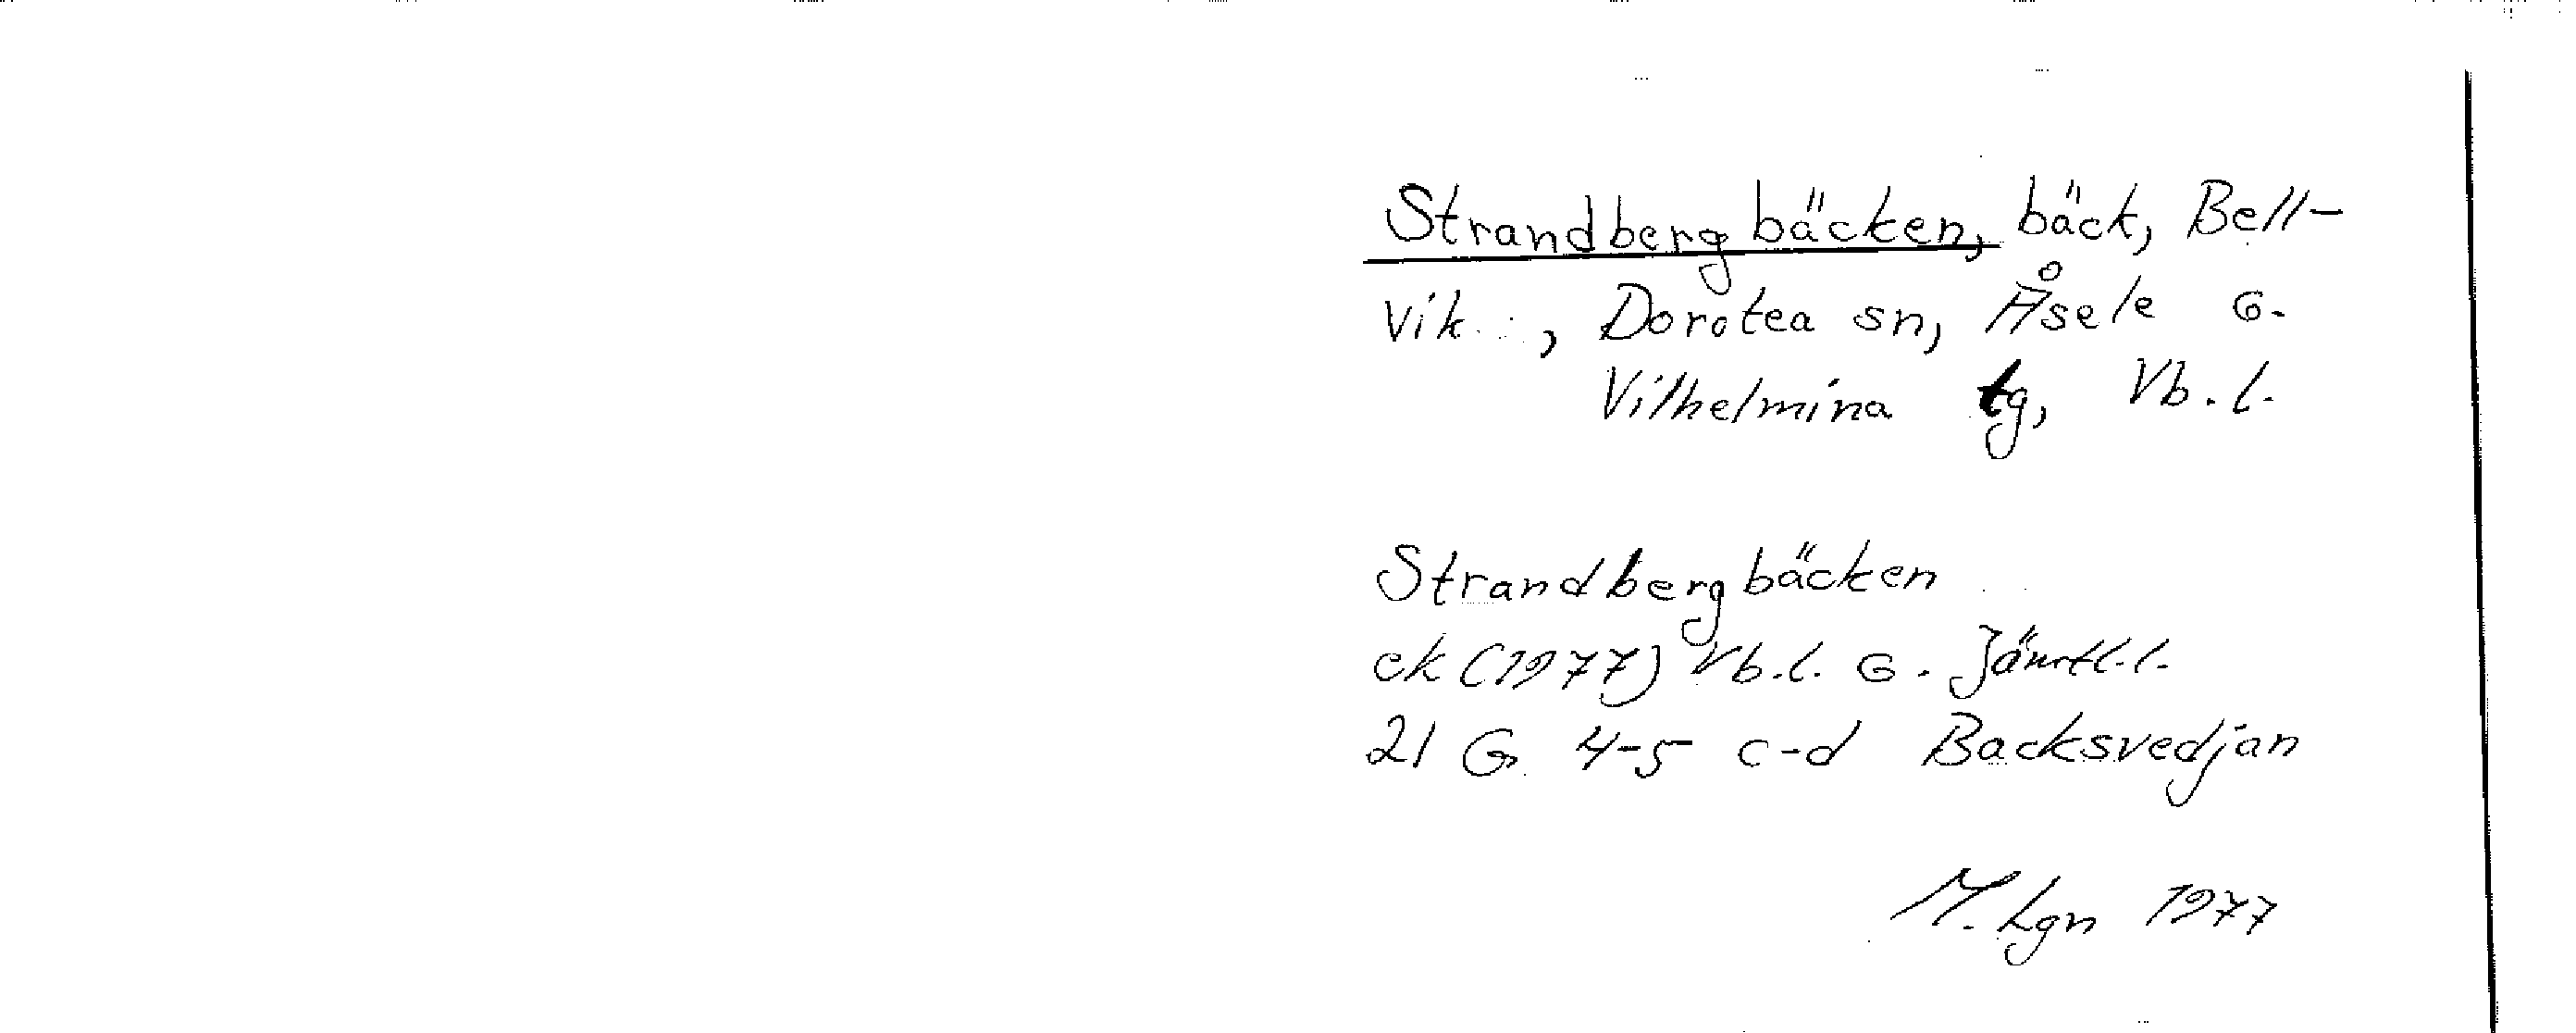 Strandbergbäcken, bäck, Bell-
vik , Dorotea sn, Åsele o.
Vilhelmina tg, Vb. l.
Strandbergbäcken
ek (1977) Vb. l. o. Jämtl. l.
21 G 4-5 c-d Backsvedjan
M. Lgn 1977